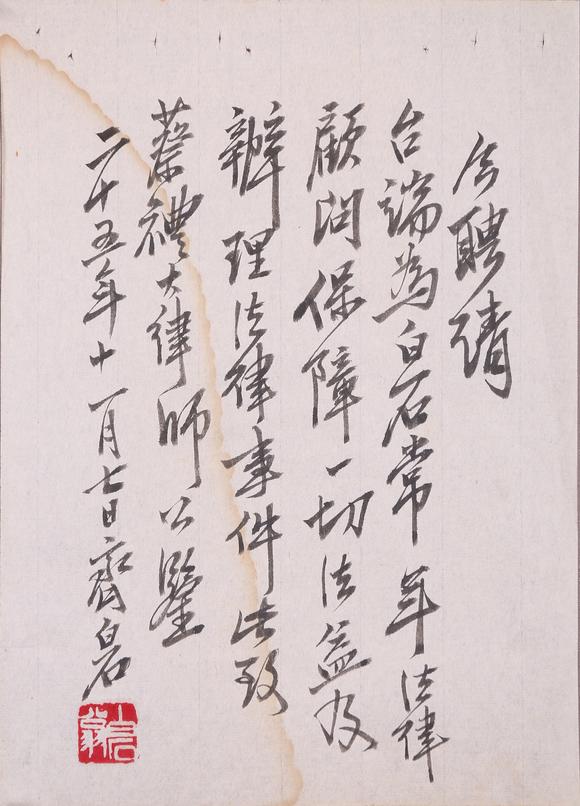 今聘請
台端為白石常年法律
顧問保障一切法益及
辦理法律事件此致
蔡禮大律師公鑒
二十五年十一月七日齊白石
白石翁